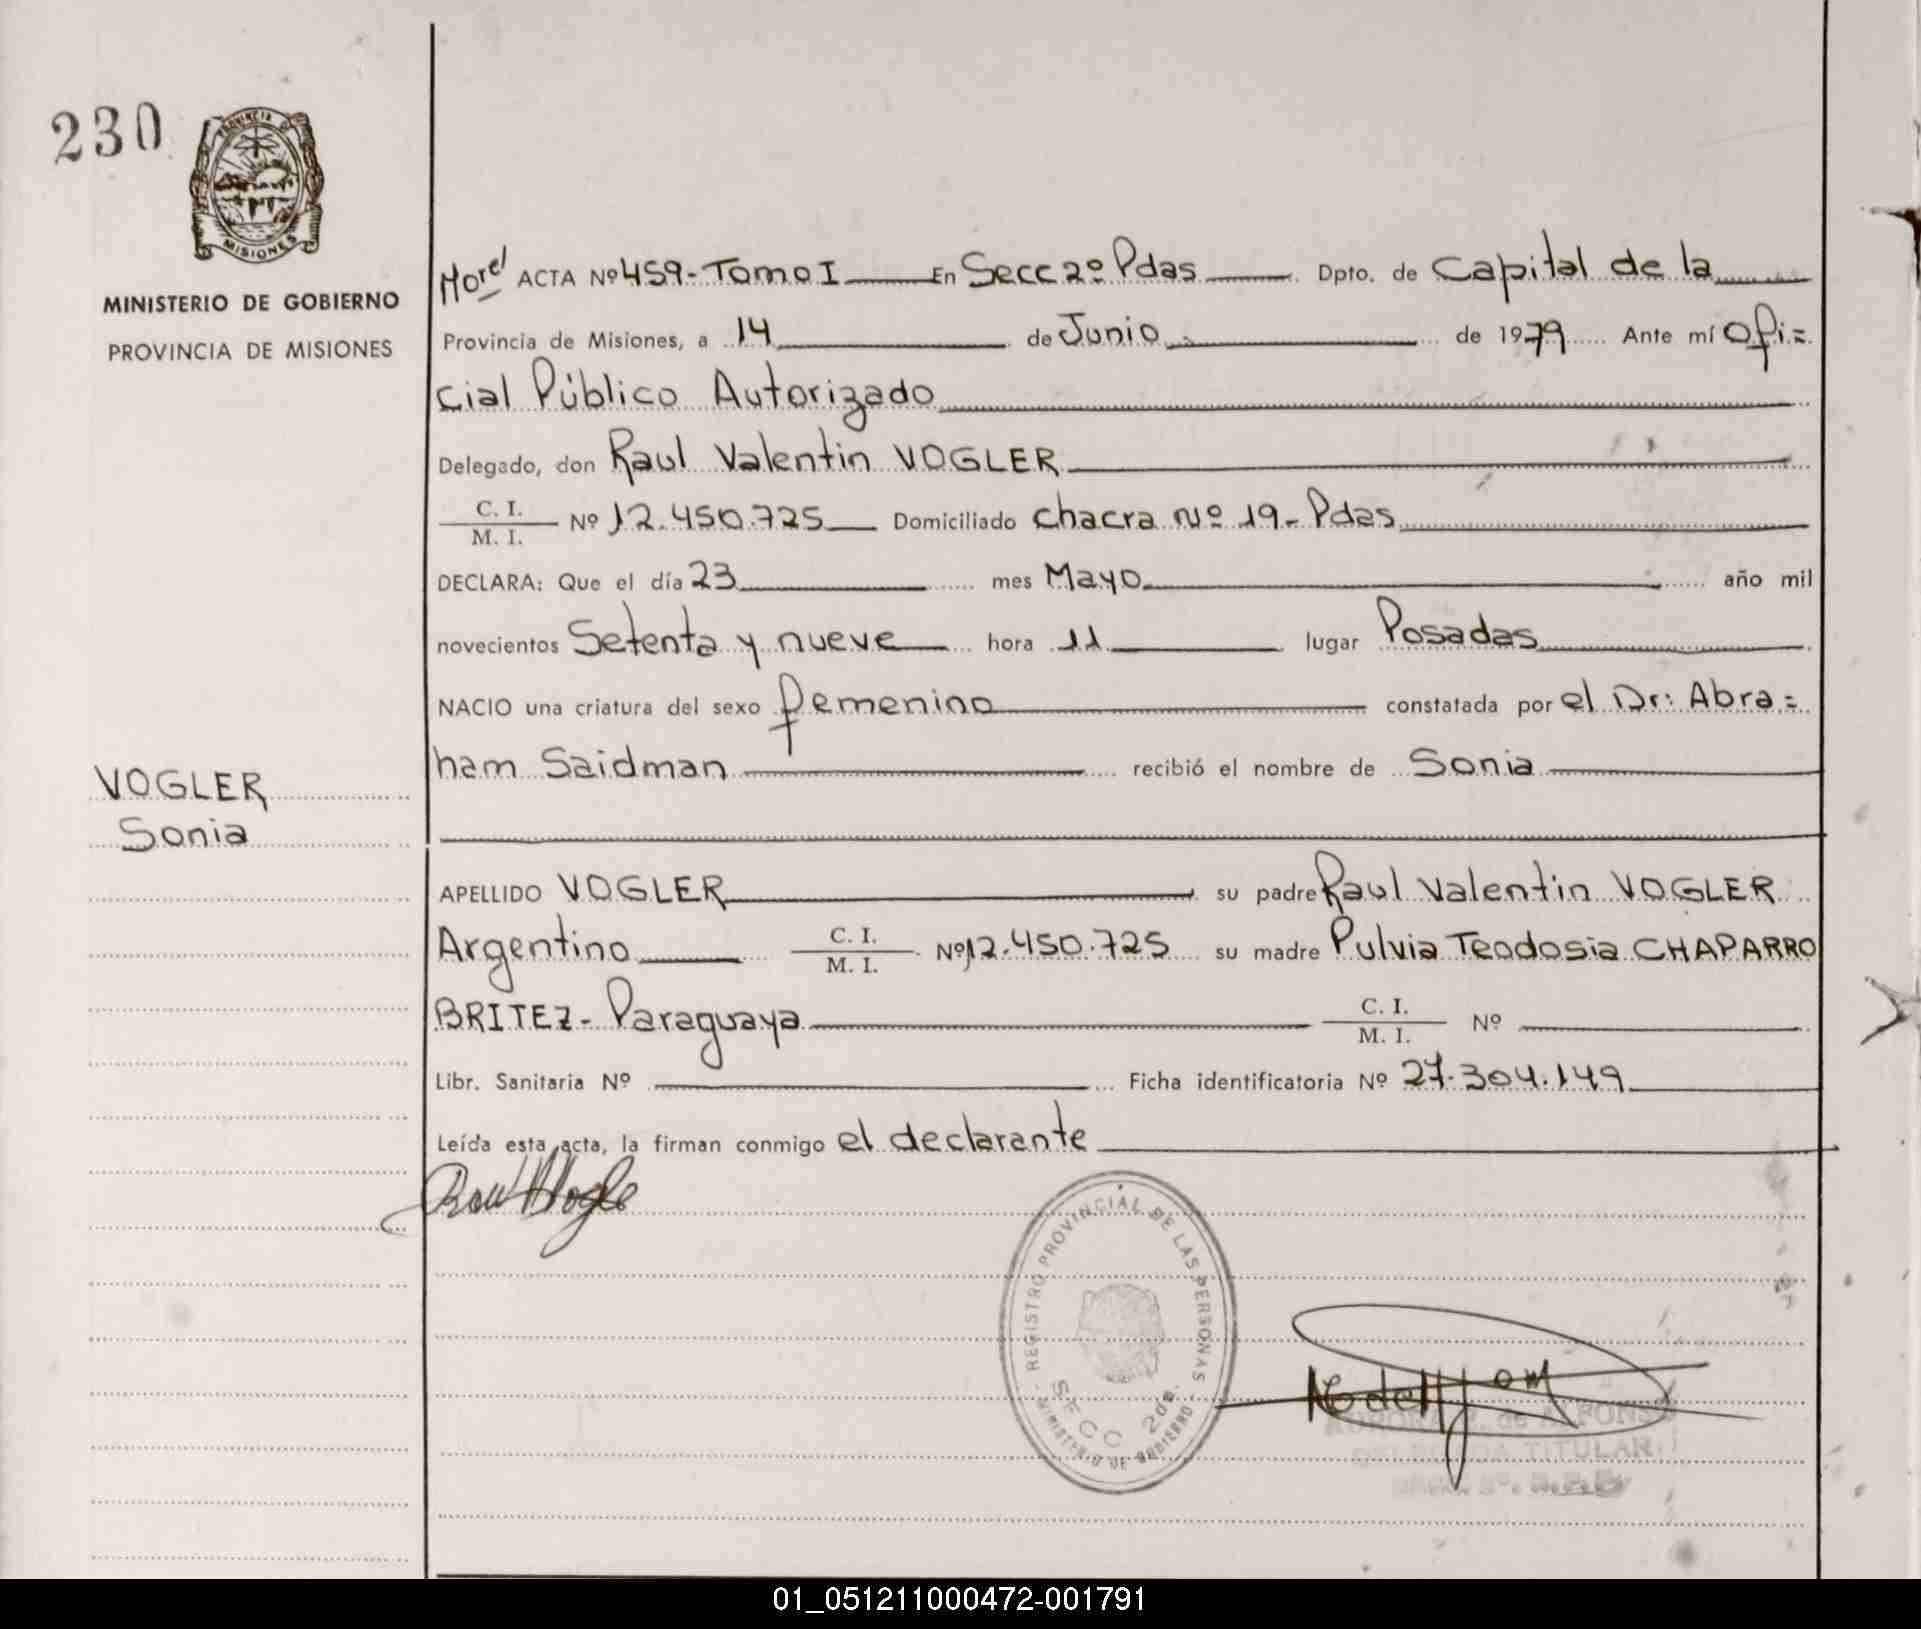 230
PROVINCIA DE
MISIONES
MINISTERIO DE GOBIERNO
PROVINCIA DE MISIONES
ACTA Nº 459-Tomo I En Secc 2º Pdas Dpto. de Capital de la
Provincia de Misiones, a 14 de Junio de 1979 Ante mí Ofi=
cial Público Autorizado
Delegado, don Raul Valentin VOGLER
C. I.
M. I. Nº 12.450.725 Domiciliado chacra Nº 19- Pdas
DECLARA: Que el día 23 mes Mayo año mil
novecientos Setenta y nueve hora 11 lugar Posadas
NACIO una criatura del sexo femenino constatada por el Dr: Abra=
ham Saidman recibió el nombre de Sonia
VOGLER
Sonia
APELLIDO VOGLER su padre Raul Valentin VOGLER
Argentino C. I.
M. I. Nº 12.450.725 su madre Pulvia Teodosia CHAPARRO
BRITEZ- Paraguaya C. I.
M. I. Nº
Libr. Sanitaria Nº Ficha identificatoria Nº 27.304.149
Leída esta acta, la firman conmigo el declarante
REGISTRO PROVINCIAL DE LAS PERSONAS
SECC 2da.
MINISTERIO DE GOBIERNO
de ALFONSO
DELEGADA TITULAR
01_051211000472-001791